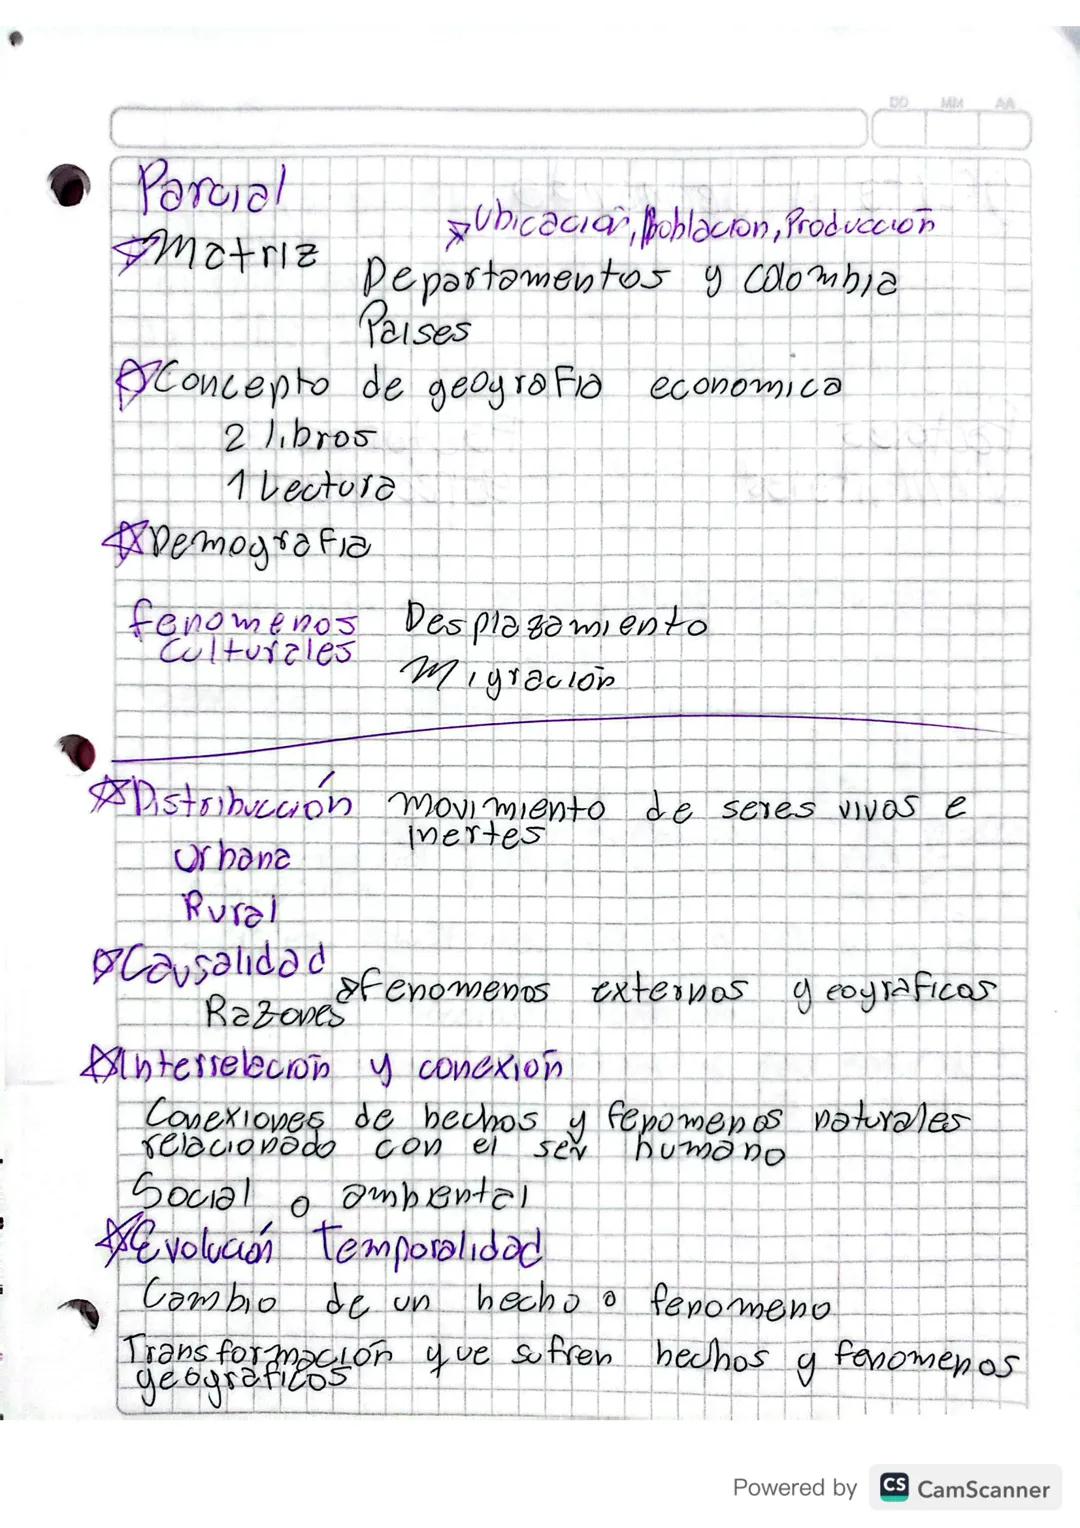 DD MM AA
Parcial
Ubicación, Población, Producción
Matriz
Departamentos y Colombia
Paises
Concepto de geografia economica
2 libros
1 Lectura
Demografia
fenomenos Desplazamiento
culturales
Migración
Distribucción movimiento de seres vivos e
inertes
Urbana
Rural
Causalidad
Fenomenos externos geograficos
Razones
Interrelación y conexión
Conexiones de hechos y fenomenos naturales
relacionado con el ser humano
Social o ambiental
Evolución Temporalidad
Cambio de un hecho o fenomeno
Transformación que sufren hechos y fenomenos
geograficos
Powered by CS CamScanner